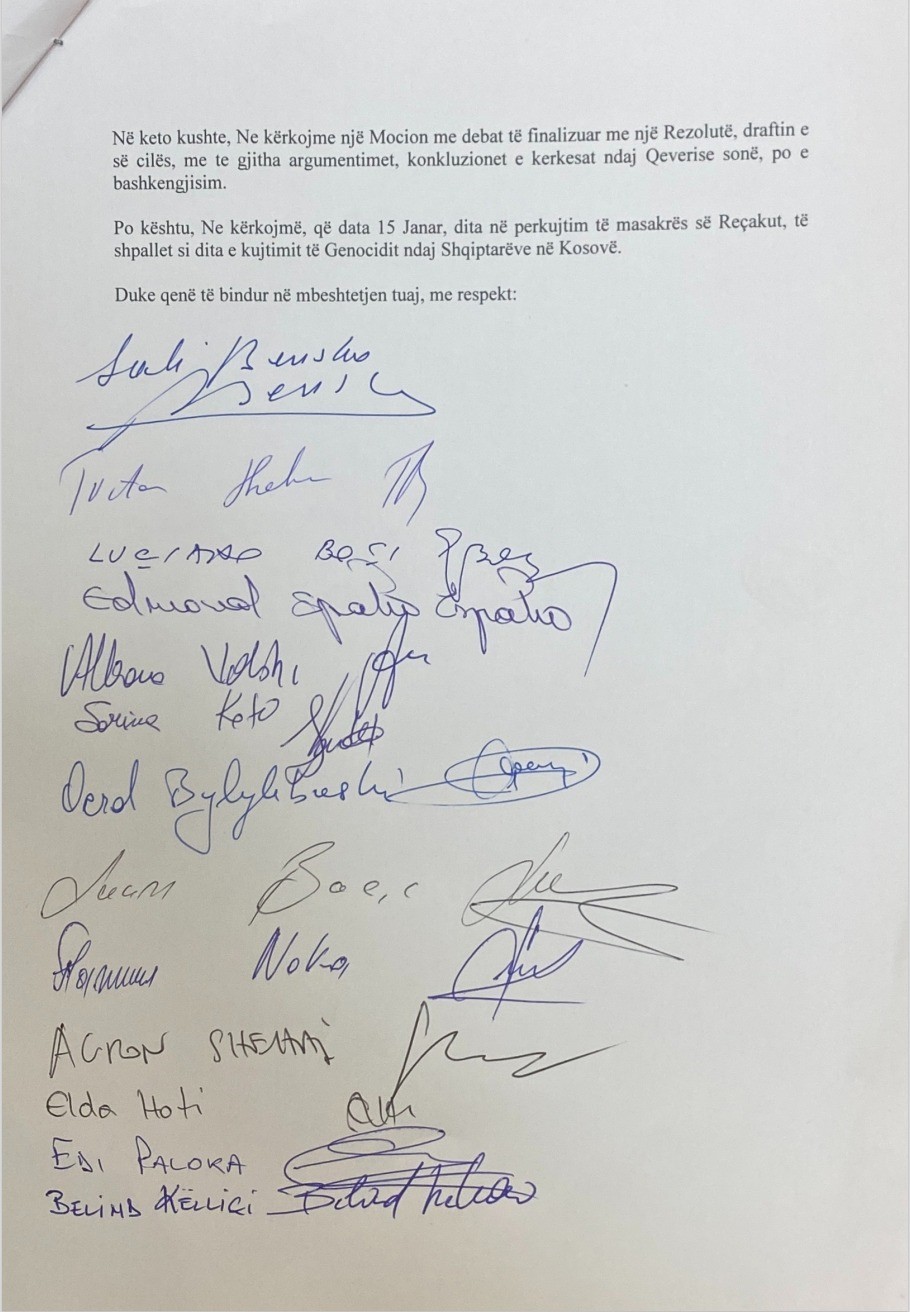 Në keto kushte, Ne kërkojme një Mocion me debat të finalizuar me një Rezolutë, draftin e
së cilës, me te gjitha argumentimet, konkluzionet e kerkesat ndaj Qeverise sonë, po e
bashkengjisim.
Po kështu, Ne kërkojmë, që data 15 Janar, dita në perkujtim të masakrës së Reçakut, të
shpallet si dita e kujtimit të Genocidit ndaj Shqiptarëve në Kosovë.
Duke qenë të bindur në mbeshtetjen tuaj, me respekt:
Sali Berisha
Berisha
Tritan Shehu
Luciano Boçi
Edmond Spaho Spaho
Albana Vokshi
Sorina Koti
Oerd Bylykbashi
Noka
AGRON SHEHAJ
Elda Hoti
EDI PALOKA
BELIND KËLLIÇI